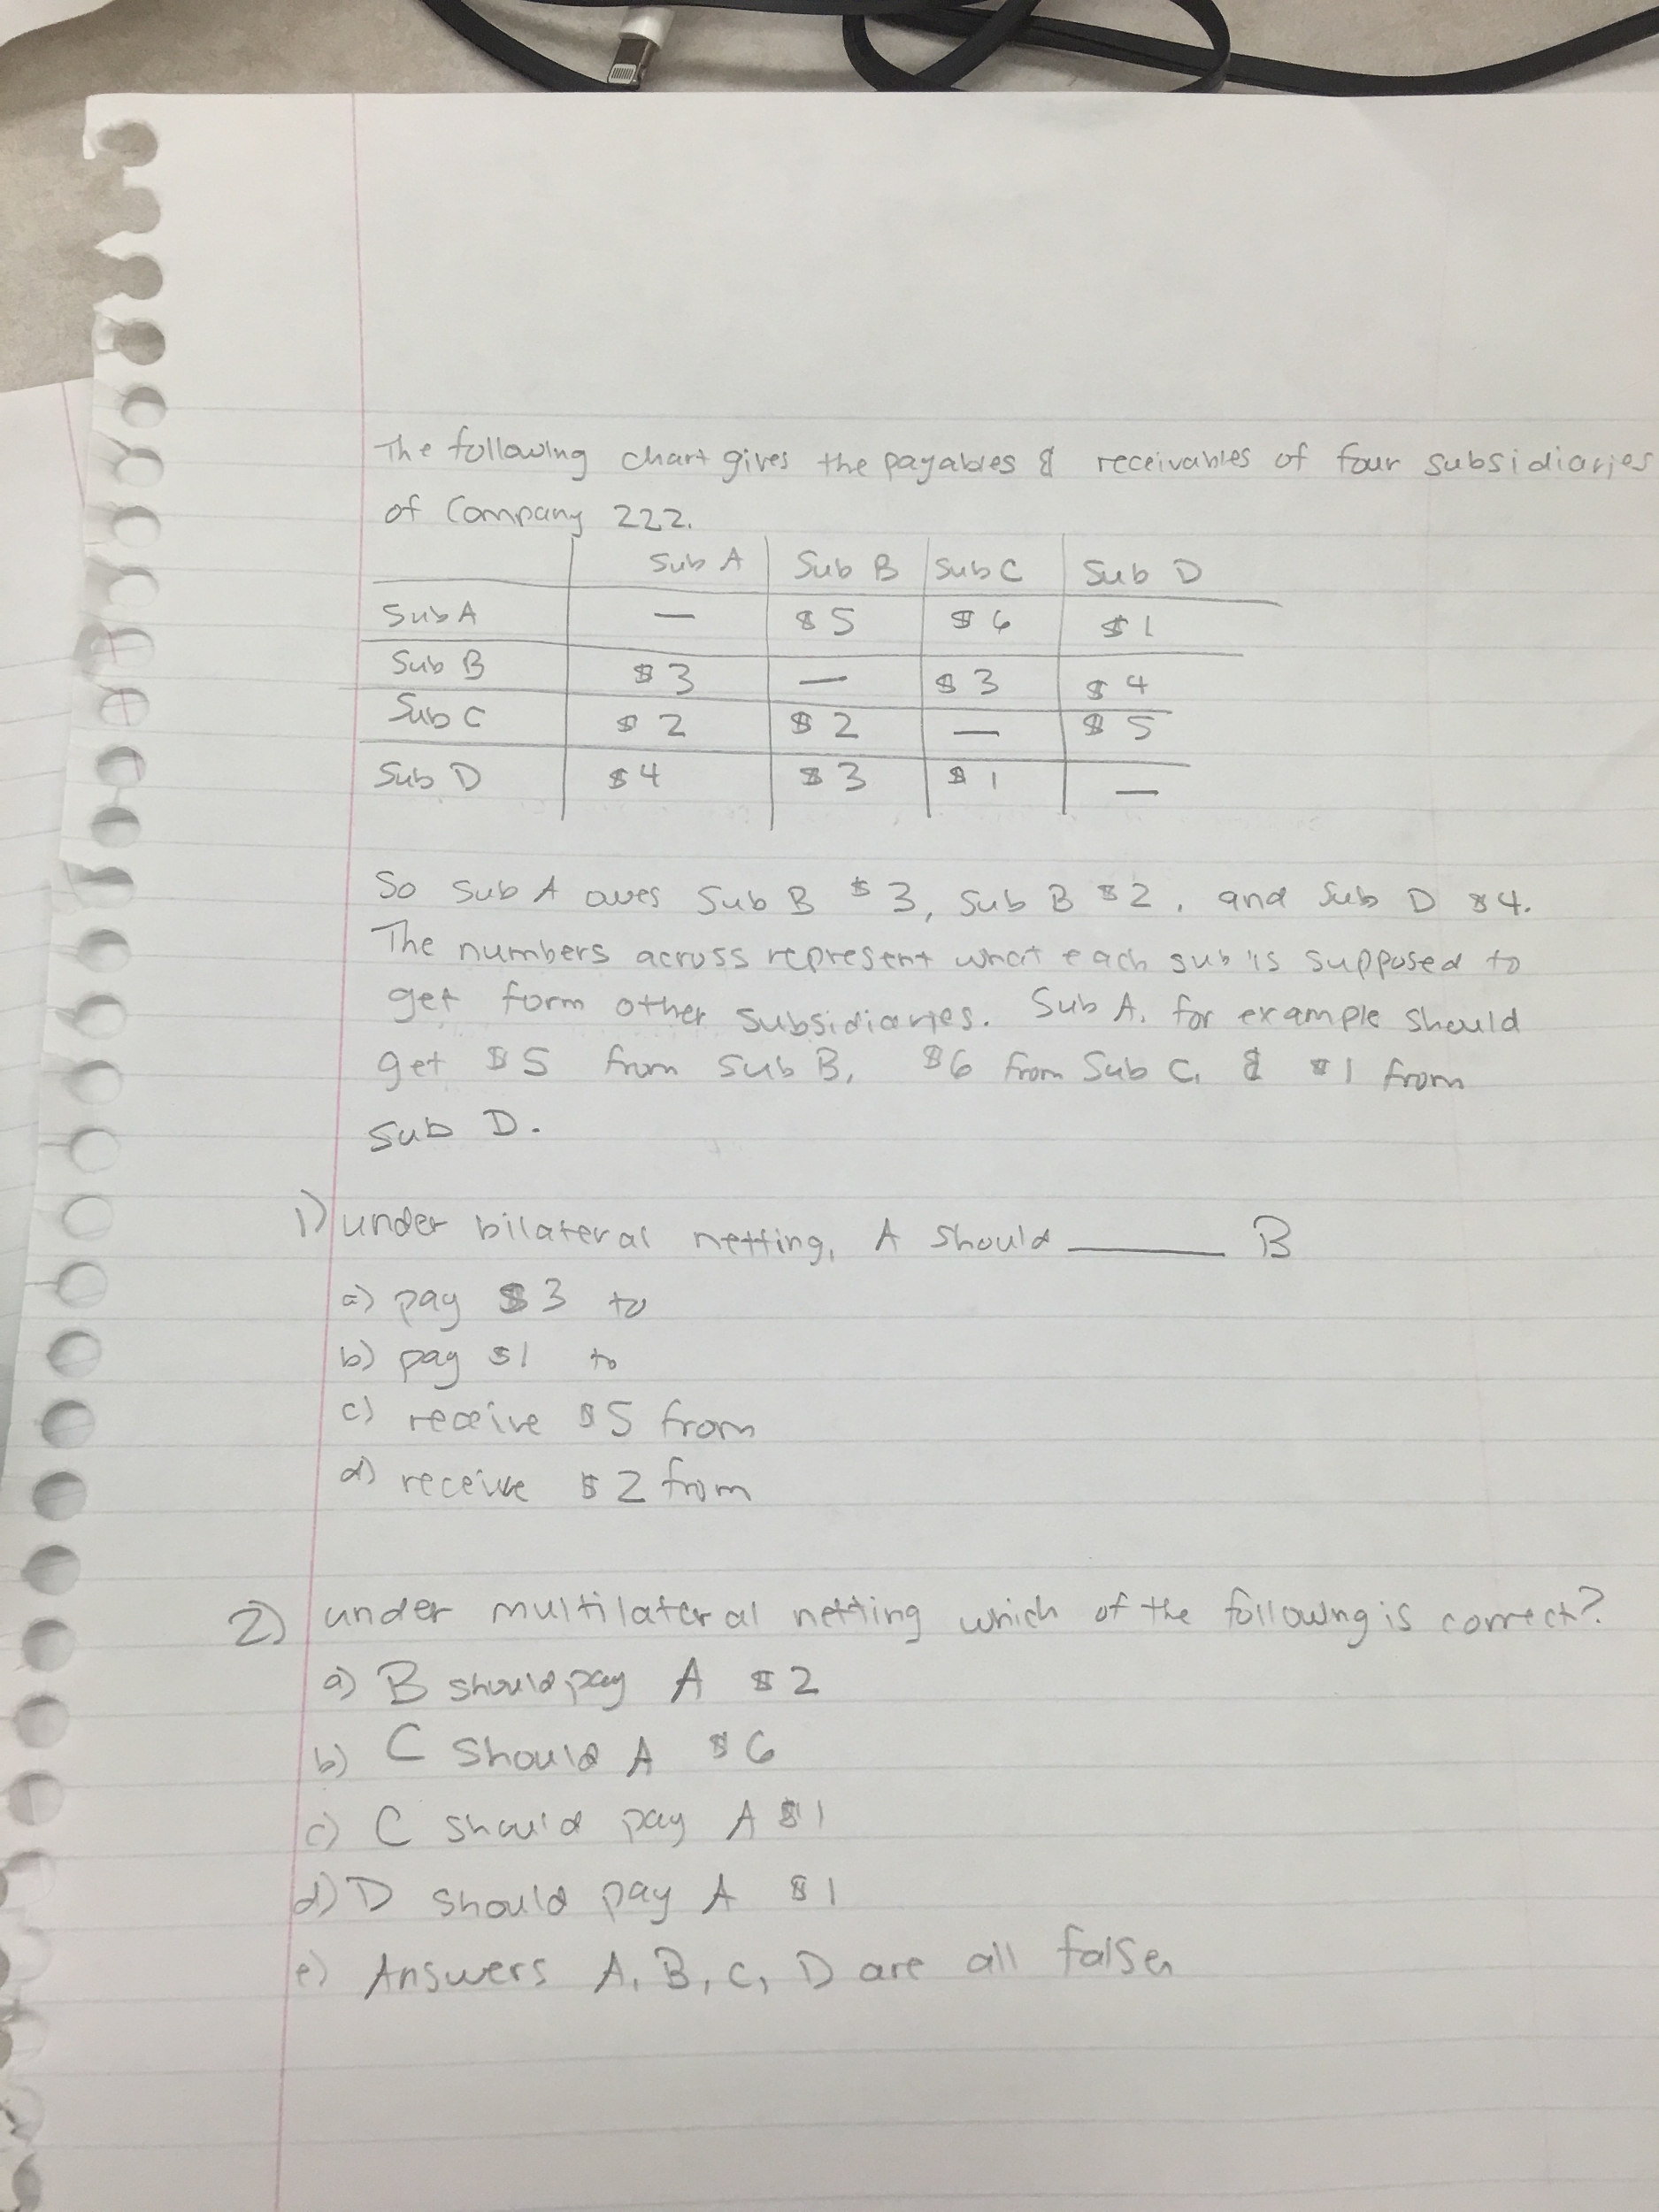 The following chart gives the payables & receivables of four subsidiaries
of Company 222.
Sub A Sub B Sub C Sub D
Sub A — $5 $6 $1
Sub B $3 — $3 $4
Sub C $2 $2 — $5
Sub D $4 $3 $1 —
So Sub A owes Sub B $3, Sub B $2, and Sub D $4.
The numbers across represent what each sub is supposed to
get form other subsidiaries. Sub A, for example should
get $5 from Sub B, $6 from Sub C, & $1 from
Sub D.
1) under bilateral netting, A should ______ B
a) pay $3 to
b) pay $1 to
c) receive $5 from
d) receive $2 from
2) under multilateral netting which of the following is correct?
a) B should pay A $2
b) C should A $6
c) C should pay A $1
d) D should pay A $1
e) Answers A, B, C, D are all false.